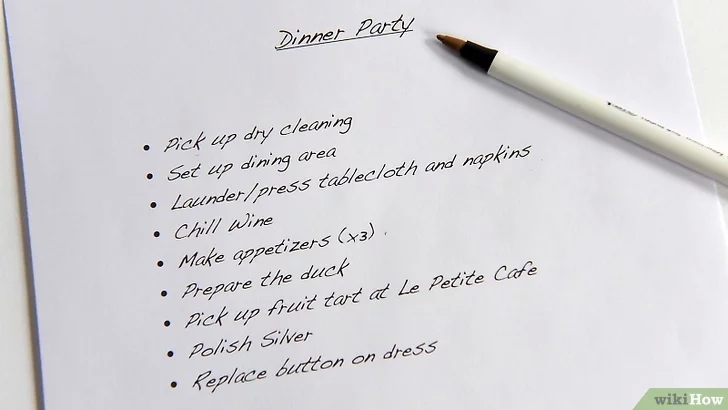 Dinner Party
• Pick up dry cleaning
• Set up dining area
• Launder/press tablecloth and napkins
• Chill Wine
• Make appetizers (x3).
• Prepare the duck
• Pick up fruit tart at Le Petite Cafe
• Polish Silver
• Replace button on dress
wikiHow